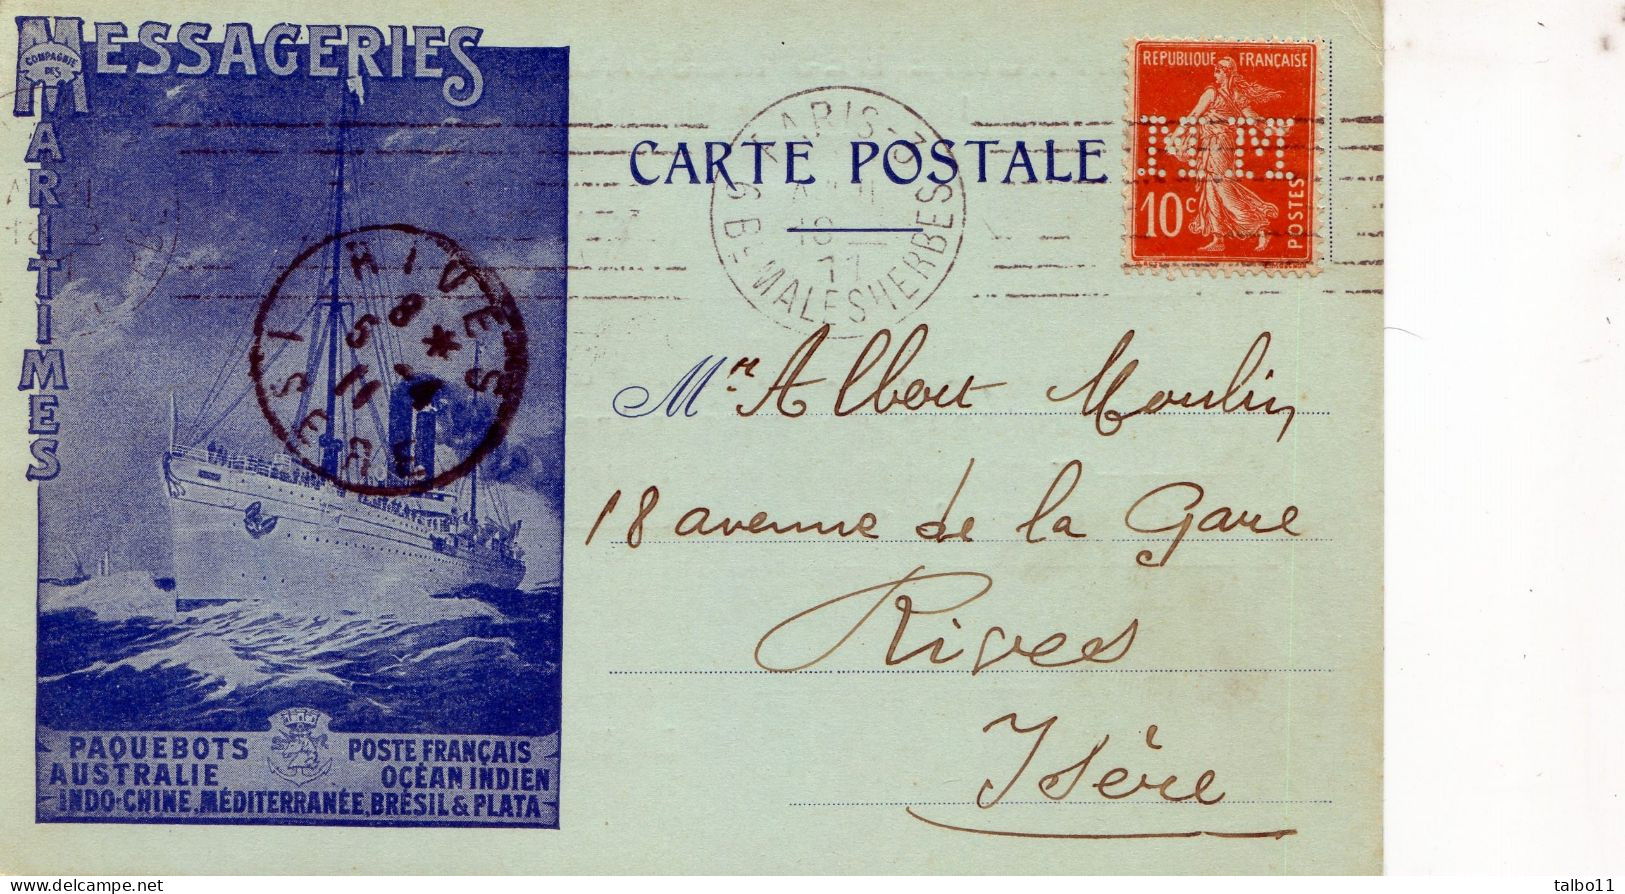 MESSAGERIES
COMPAGNIE
DES
MARITIMES
PAQUEBOTS POSTE FRANÇAIS
AUSTRALIE OCÉAN INDIEN
INDO-CHINE, MÉDITERRANÉE, BRÉSIL & PLATA
CARTE POSTALE
REPUBLIQUE FRANÇAISE
MM
10c
POSTES
PARIS
Bd MALESHERBES
18
11
RIVES
8 *
5 - 4
11
ISERE
Mr Albert Moulin
18 avenue de la Gare
Rives
Isère
talbo11